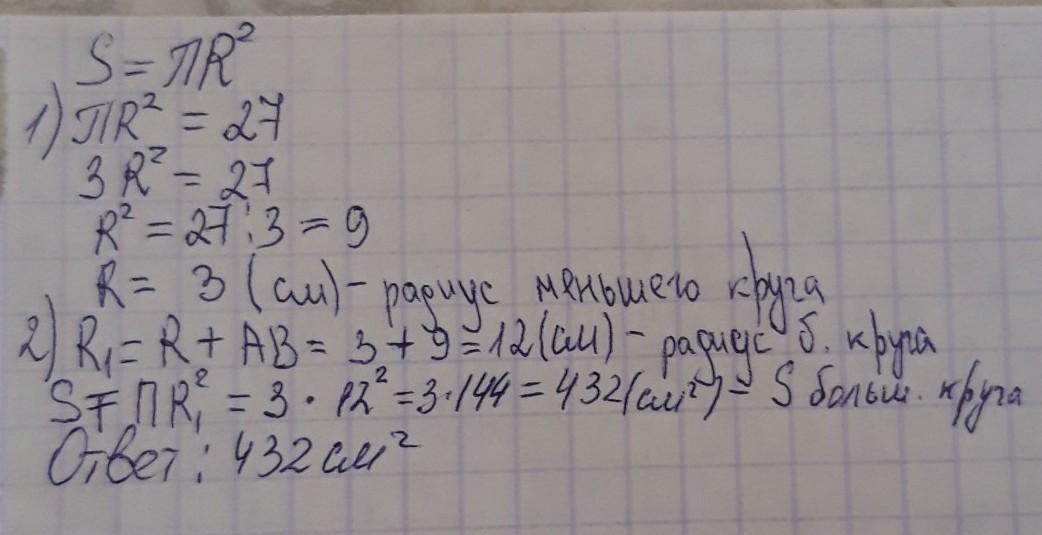 S = πR²
1) πR² = 27
3R² = 27
R² = 27 : 3 = 9
R = 3 (см) - радиус меньшего круга
2) R₁ = R + AB = 3 + 9 = 12 (см) - радиус б. круга
S = πR₁² = 3 · 12² = 3 · 144 = 432 (см²) - S больш. круга
Ответ: 432 см²